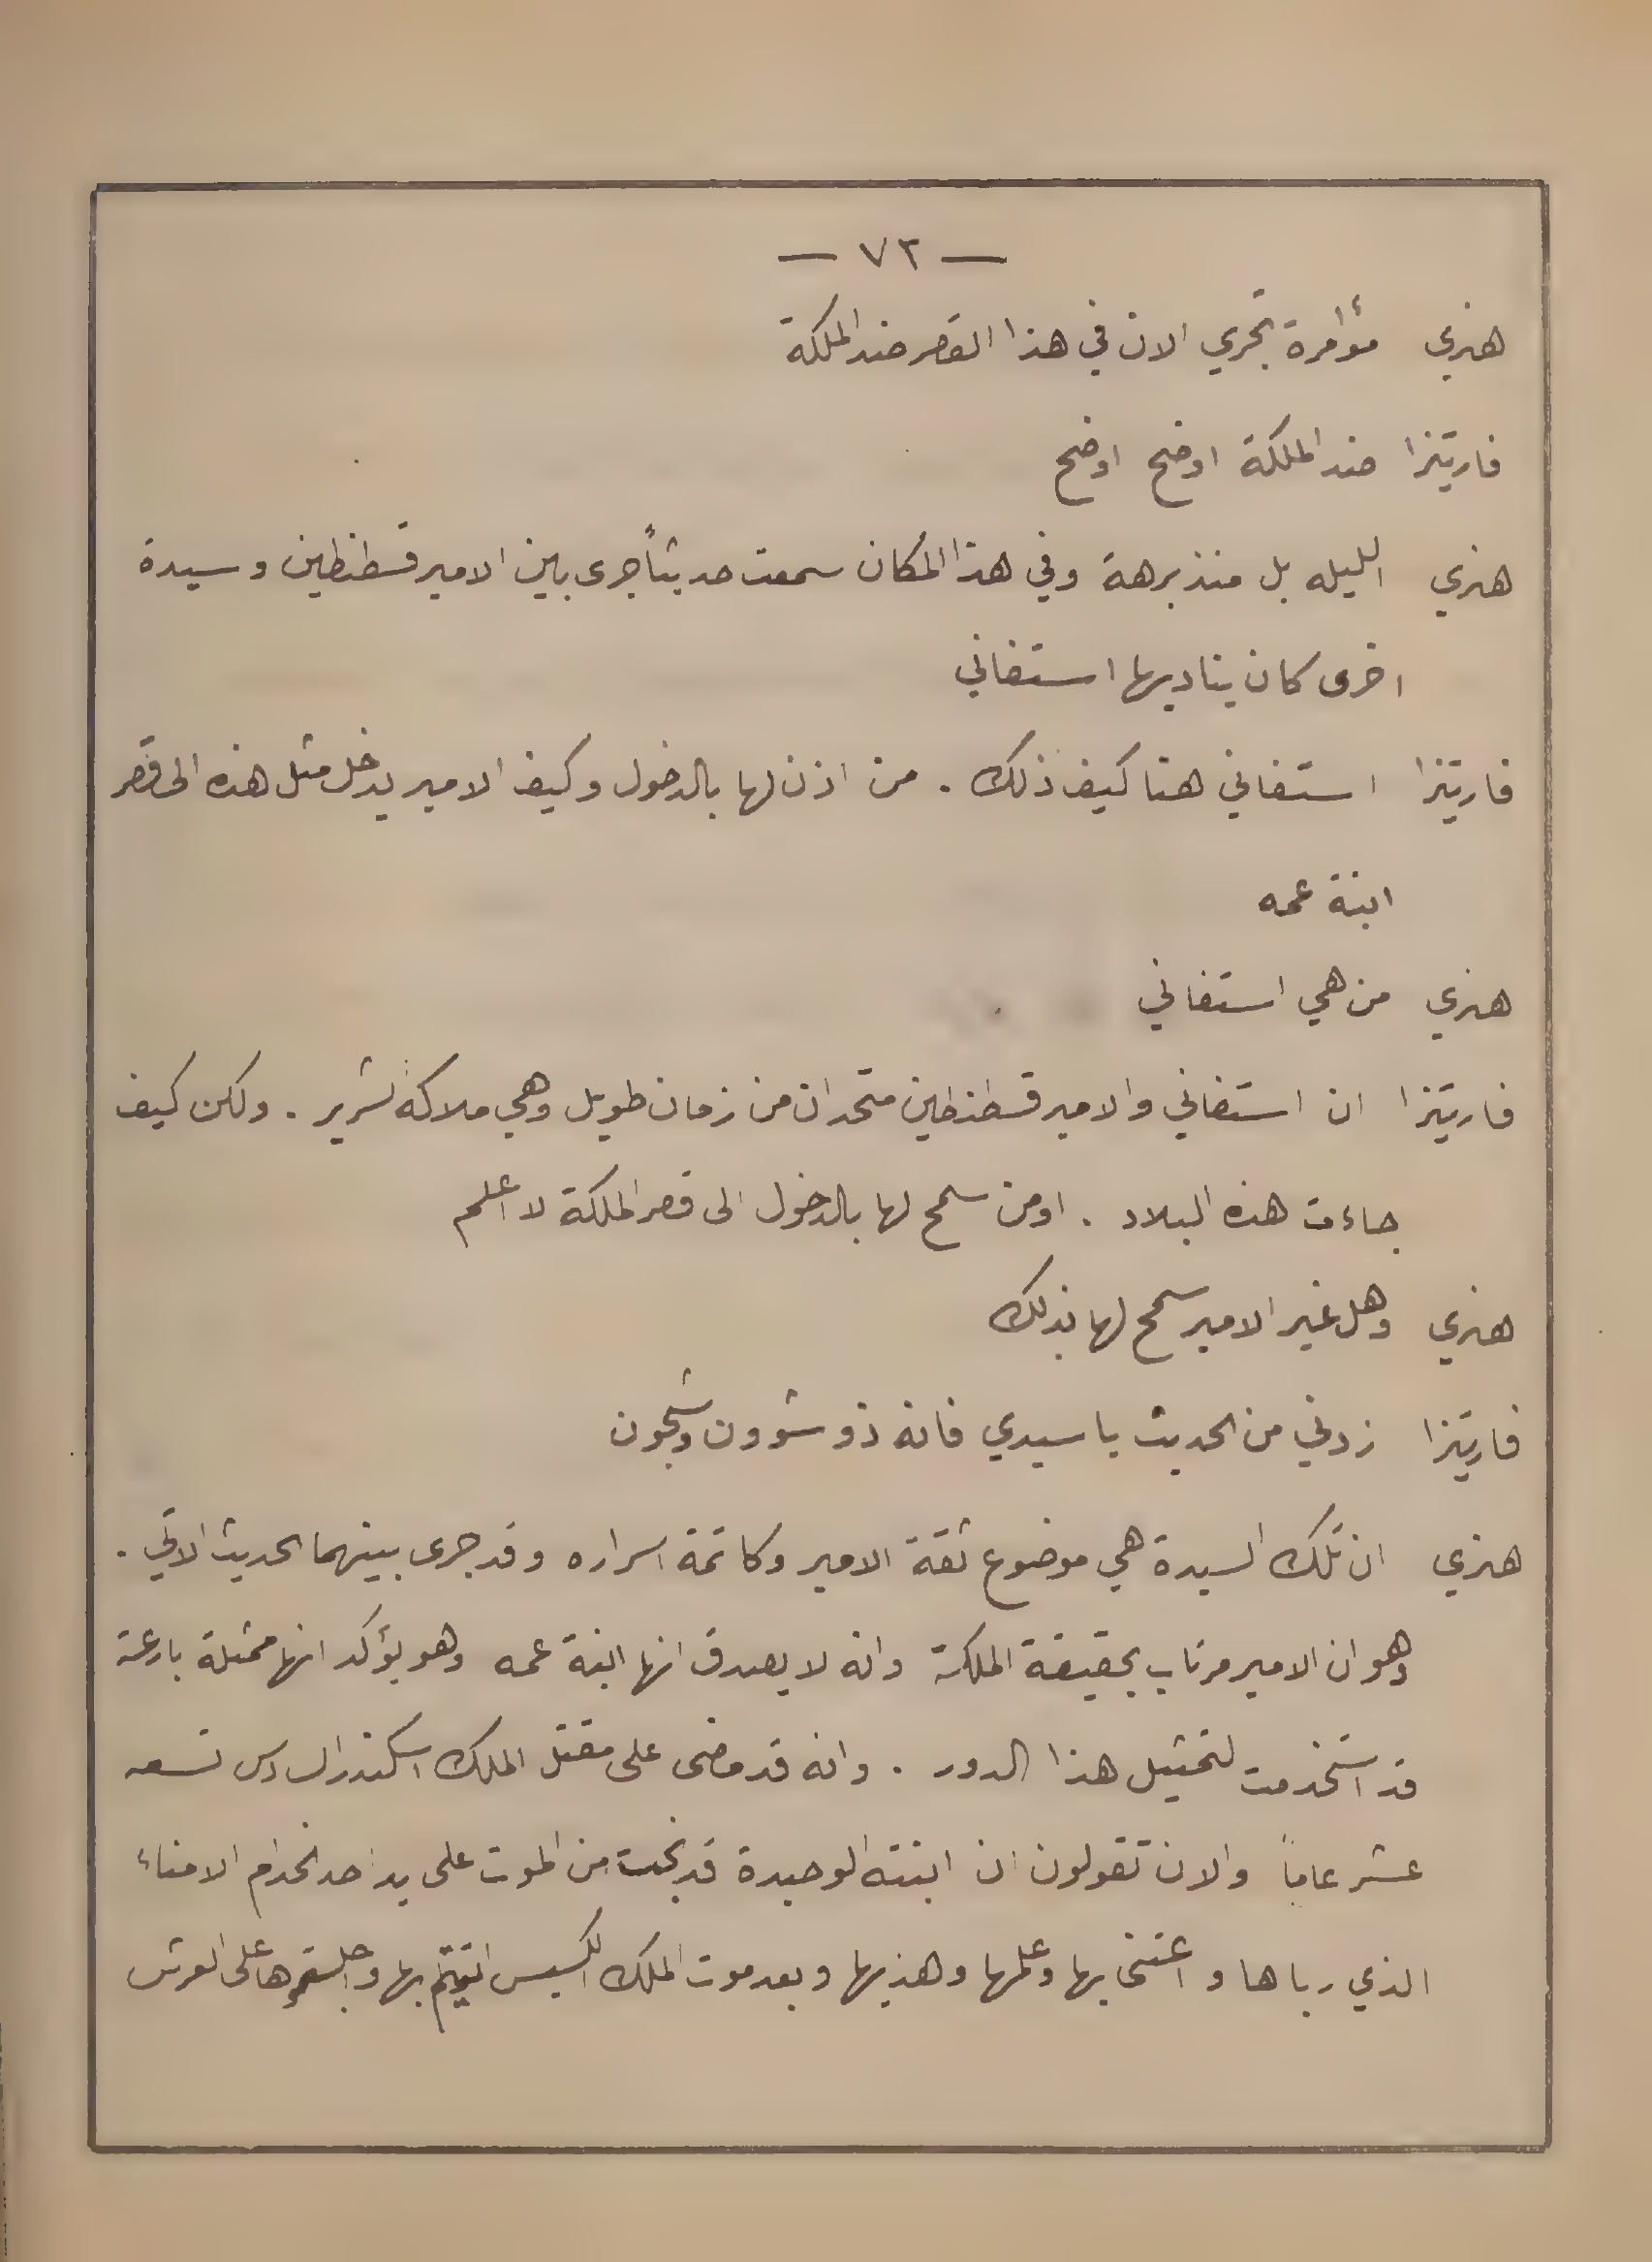 — ٧٢ —
هنري مؤامرة تجري الان في هذا القصر ضد الملكة
فاريتزا ضد الملكة اوضح اوضح
هنري الليله بل منذ برهة وفي هذا المكان سمعت حديثاً جرى بين الامير قسطنطين وسيدة
اخرى كان يناديها استفاني
فاريتزا استفاني هنا كيف ذلك . من اذن لها بالدخول وكيف الامير يدخل مثل هذه الى قصر
ابنة عمه
هنري من هي استفاني
فاريتزا ان استفاني والامير قسطنطين متحدان من زمان طويل وهي ملاكه لشرير . ولكن كيف
جاءت هذه البلاد . اومن سمح لها بالدخول الى قصر الملكة لا اعلم
هنري وهل غير الامير سمح لها بذلك
فاريتزا زدني من الحديث يا سيدي فانه ذو شوون وشجون
هنري ان تلك السيدة هي موضوع ثقة الامير وكاتمة اسراره وقد جرى بينهما الحديث الاتي .
وهو ان الامير مرتاب بحقيقة الملكة وانه لا يصدق انها ابنة عمه وهو يؤكد انها ممثلة بارعة
قد استخدمت لتمثيل هذا الدور . وانه قد مضى على مقتل الملك اسكندر السادس تسعه
عشر عاماً والان تقولون ان ابنته الوحيدة قد نجت من الموت على يد احد الخدام الامناء
الذي رباها و اعتنى بها وعلمها وهذبها وبعد موت الملك الكسيس اتيتم بها واجلستموها على العرش